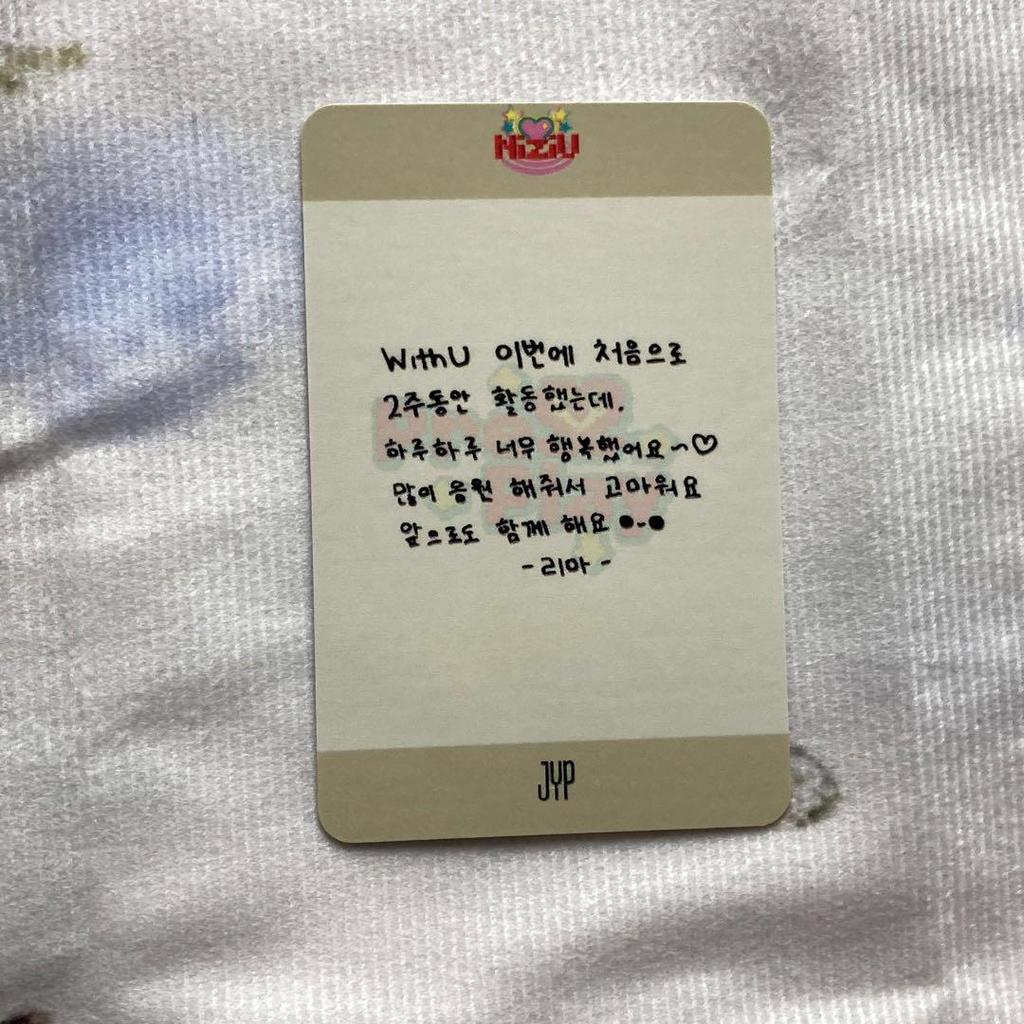 NiziU
WithU 이번에 처음으로
2주동안 활동했는데,
하루하루 너무 행복했어요~♡
많이 응원 해줘서 고마워요
앞으로도 함께 해요 ●~●
- 리마 -
JYP